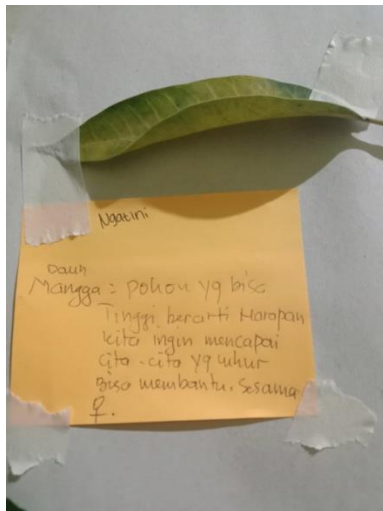 Ngatini
Daun
Mangga = pohon yg bisa
Tinggi berarti Harapan
kita ingin mencapai
cita-cita yg luhur
Bisa membantu. Sesama
♀.